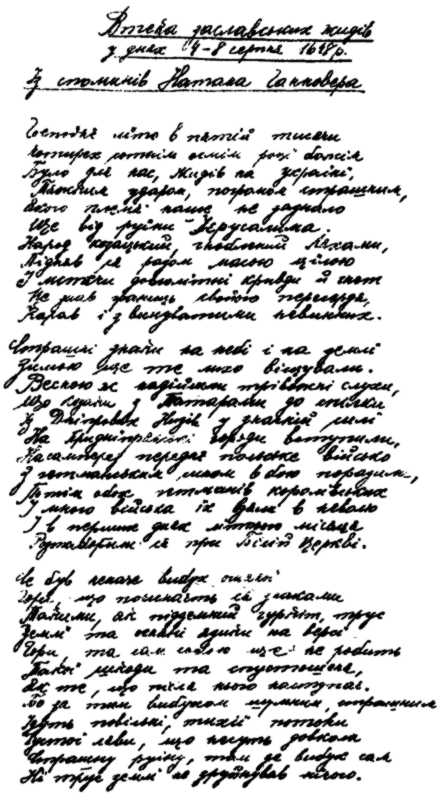 Втеча заславських жидів
у днях 4-8 серпня 1648 р.
Із споминів Натана Ганновера
Господнє літо в пятій тисячи
чотирох сотнім осмім році
Було для нас, Жидів на Україні,
Тяжким ударом, погромом страшним,
Якого племя наше не зазнало
Ще від руїни Єрусалима.
Народ козацький, гноблений Ляхами,
Підняв ся разом масою цілою
І метячи довголітні кривди й гнет
Не мав границь свойого пересердя,
Карав і з винуватими невинних.
Страшні знаки на небі і на землі
Зимою ще те лихо віщували.
Весною ж надійшли трівожні слухи,
Що козаки з Татарами до спілки
Із Дніпрових Низів в значній силі
На Придніпрянські городи вступили,
Насамперед переднє польське військо
З гетманським сином в бою поразили,
Потім обох гетманів коронних
І много війська їх взяли в неволю
І в перших днях місяця
при Білій Церкві.
Се був неначе вибух
Гори, що починаєть ся знаками
Такими, як підземний гуркіт, трус
Землі та огняні на версі
Гори, та сам собою ще не робить
Такої шкоди та спустошіня,
Як те, що після нього наступає.
Бо за тим вибухом шумним, страшним
Ідуть повільні, тихії потоки
Густої ляви, що несуть довкола
Страшну руїну, там де вибух сам
Ні трус землі не зруйнував нічого.